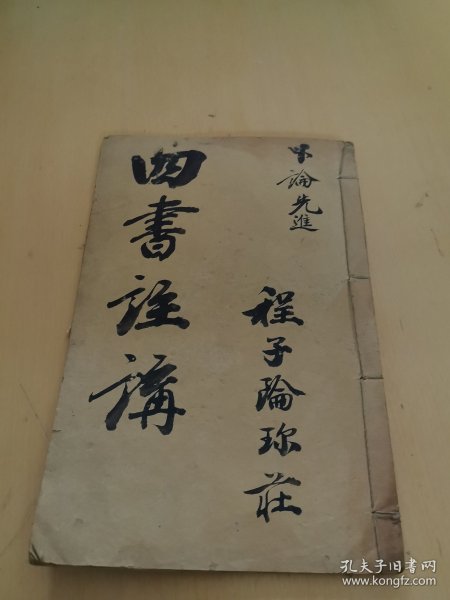 下論先進
程子瑜珎莊
四書註講
孔夫子旧书网
www.kongfz.com